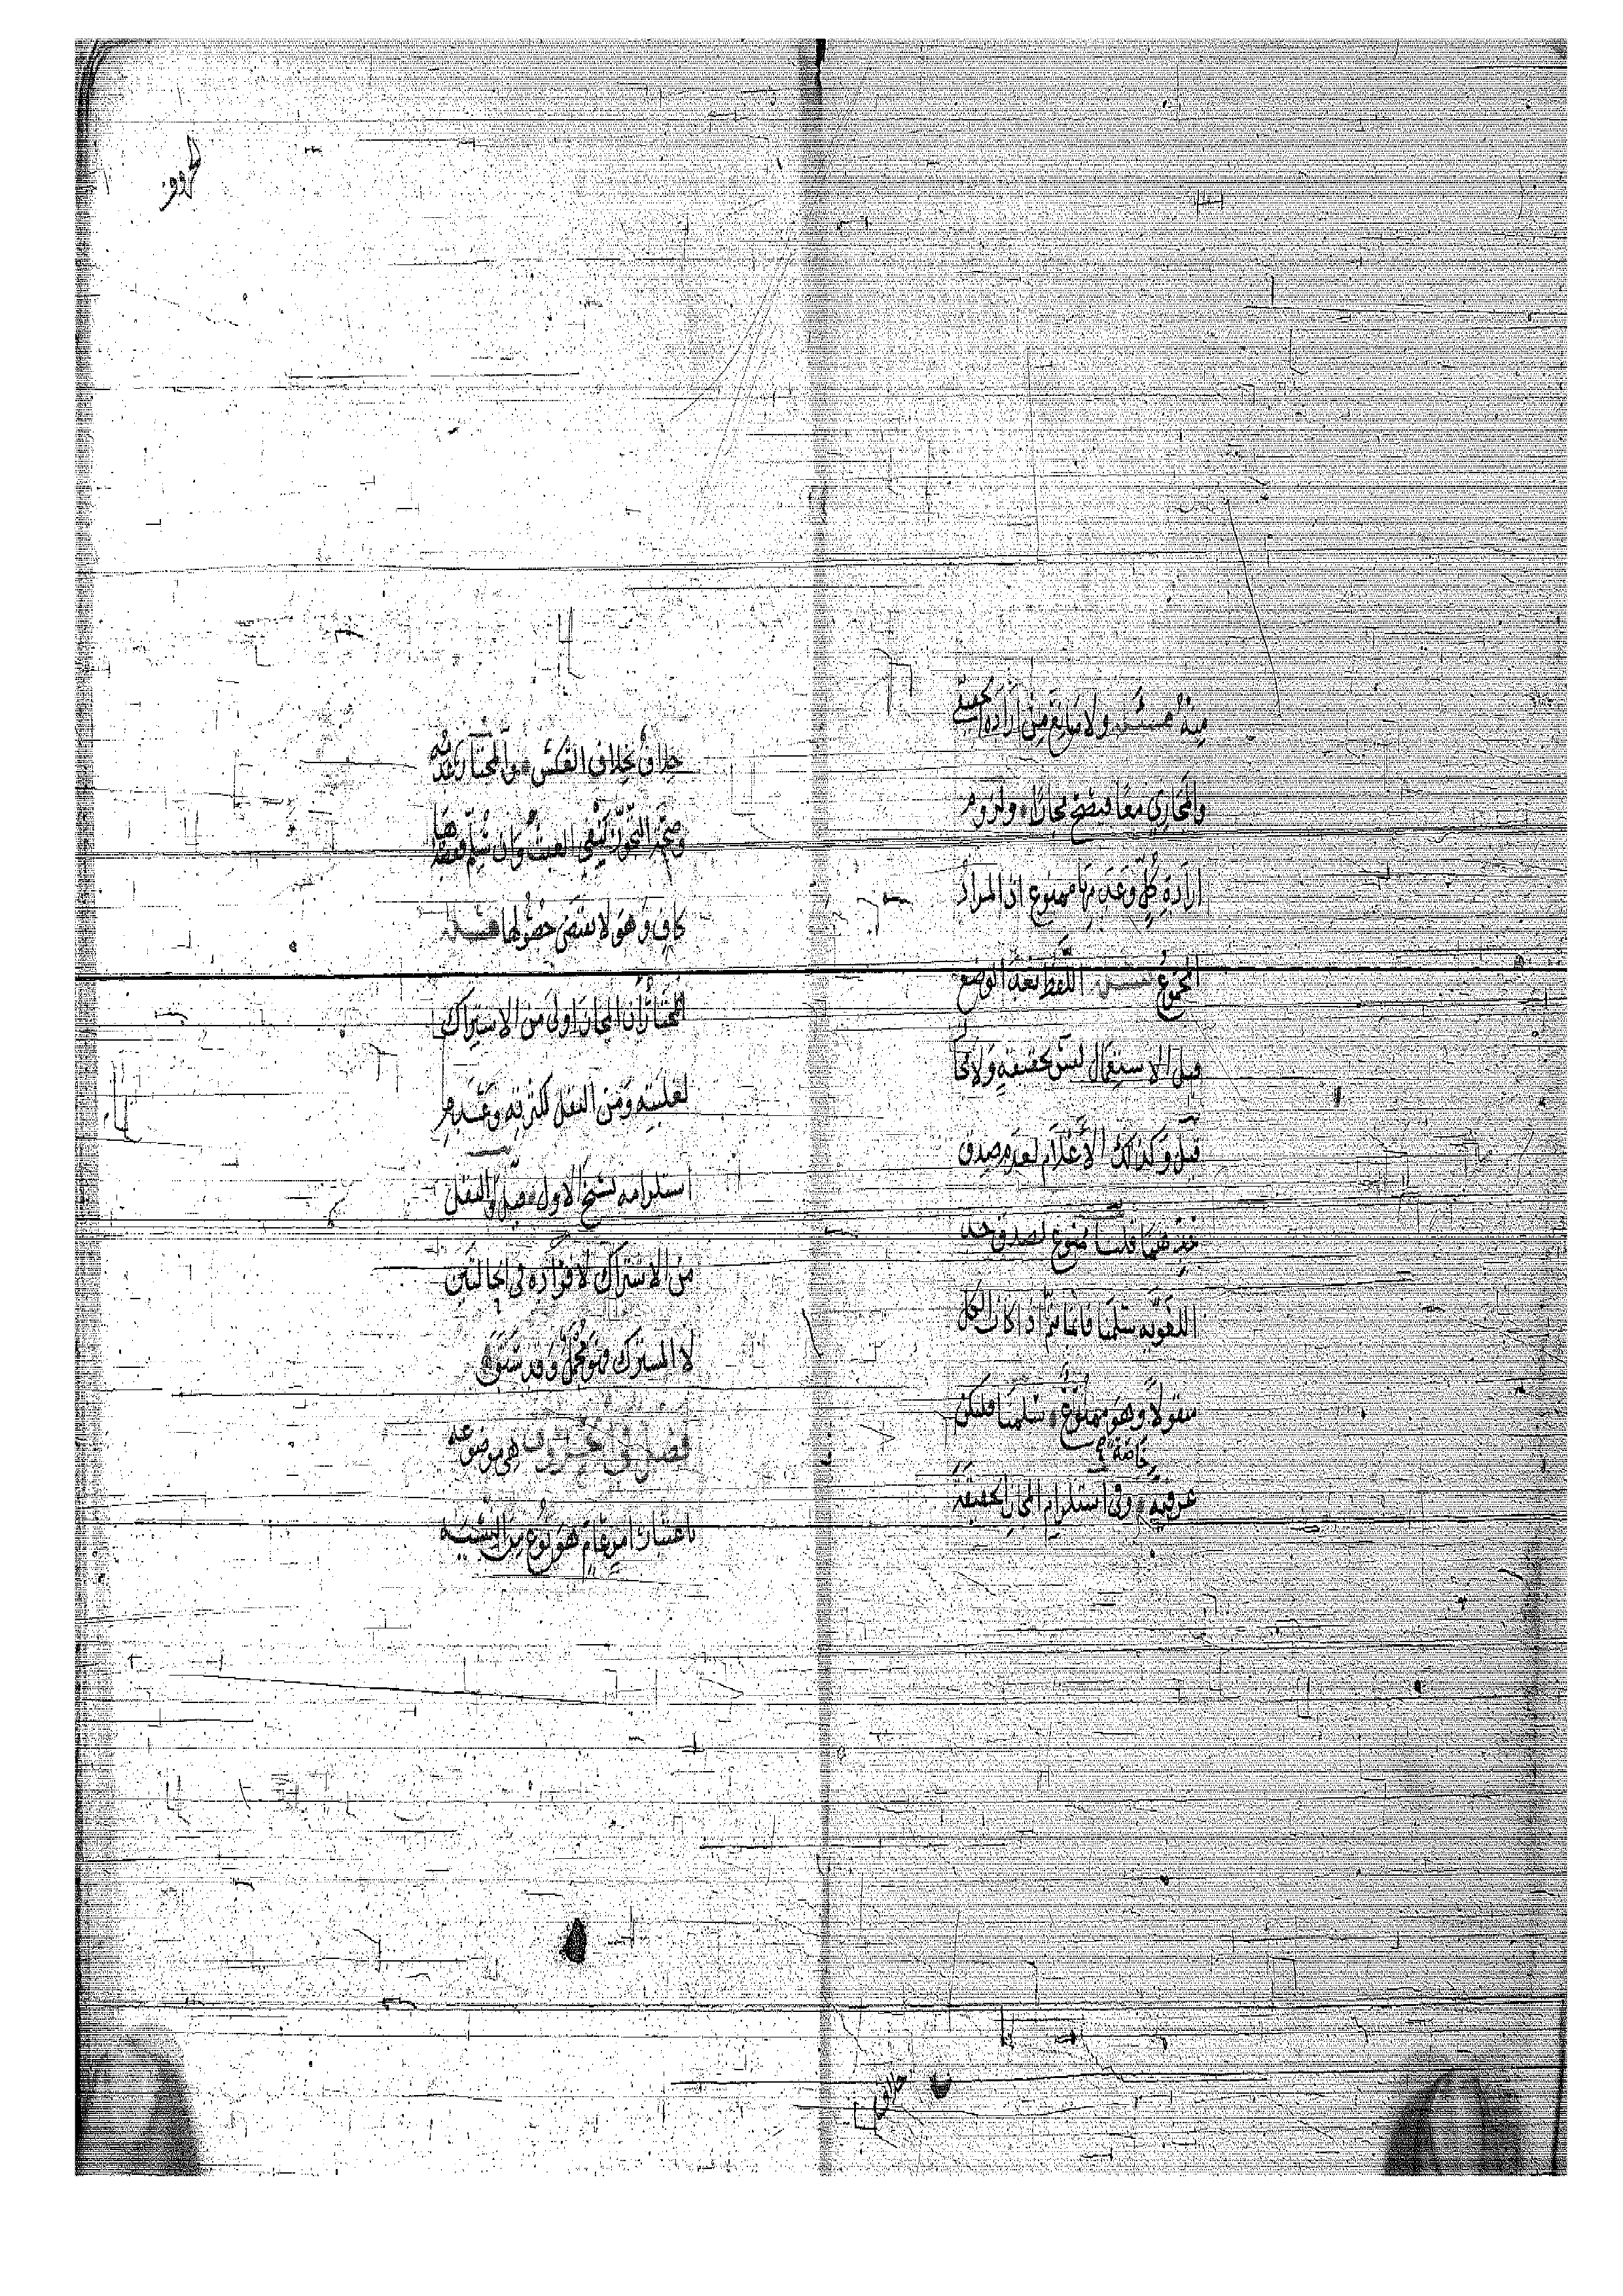 منه مسئلة ولا مانع من ارادة الحقيقي
والمجازي معًا فيصح مجازًا ولزوم
ارادة كلٍّ وعدمها ممنوع اذ المراد
المجموع مسئلة اللفظ بعد الوضع
قبل الاستعمال ليس بحقيقة ولا مجاز
قيل وكذلك الأعلام لعدم صدق
حدهما قلنا ممنوع لصدق حد
اللغوية سلمنا فانما يتم اذا كان الكل
منقولًا وهو ممنوع سلمنا فلتكن
خاصة
عرفية وفي استلزام المجاز الحقيقة
خلاف
خلاف بخلاف العكس والمختار عدمه
وصحة التجوز كيفي العبث وان سلم فبعدها
كاف وهو لا يقتضي حصولها مسئلة
المختار أن المجاز اولى من الاشتراك
لغلبته ومن النقل لكثرته وعدم
استلزامه نسخ الاول قيل والنقل
من الاشتراك لافراده في الحالتين
لا المشترك فهو مجمل وقد
فصل في الحروف هي موضوعة
باعتبار امر عام هو نوع من النسبة